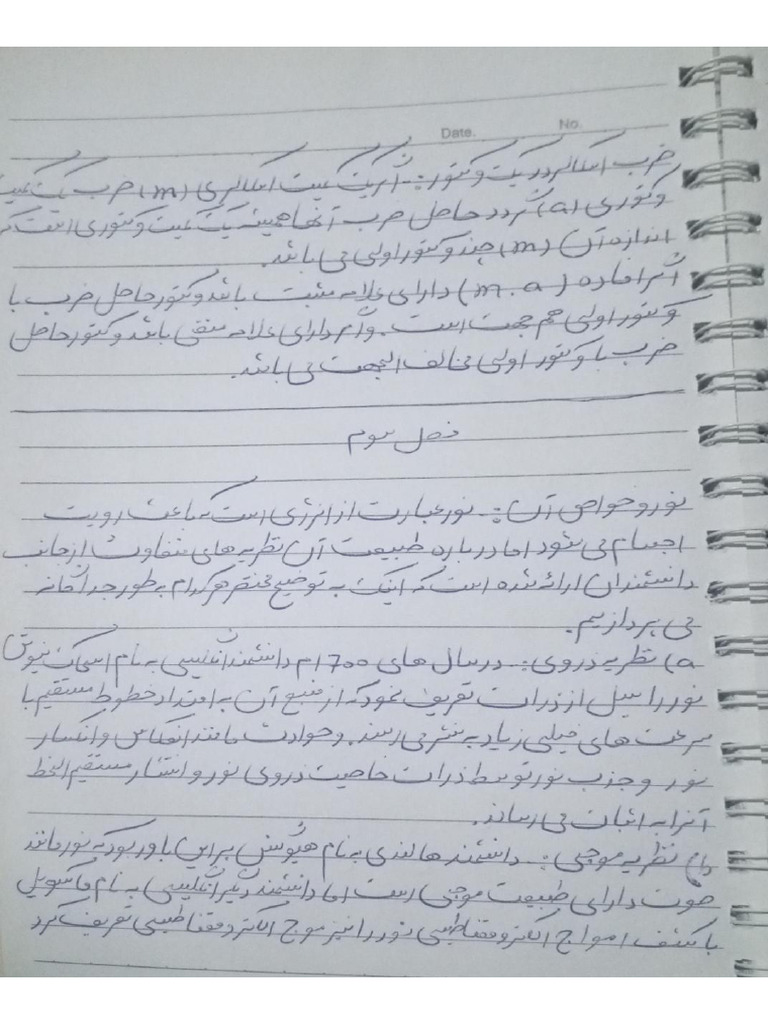 Date. No.
ضرب اسکالر در یک وکتور:- اگر یک کمیت اسکالری (m) ضرب یک کمیت
وکتوری (a) گردد حاصل ضرب آنها همیشه یک کمیت وکتوری است که
اندازه آن (m) چند وکتور اولی می باشد.
اگر افاده (m.a) دارای علامه مثبت باشد وکتور حاصل ضرب با
وکتور اولی هم جهت است. و اگر دارای علامه منفی باشد وکتور حاصل
ضرب با وکتور اولی مخالف الجهت می باشد.
فصل سوم
نور و خواص آن:- نور عبارت از انرژی است که باعث رویت
اجسام می شود اما در باره طبیعت آن نظریه های متفاوت از جانب
دانشمندان ارائه شده است که اینک به توضیح مختصر هر کدام به طور جداگانه
می پردازیم.
a) نظریه ذروی:- در سال های 1700م دانشمند انگلیسی به نام اسحاک نیوتن
نور را سیل از ذرات تعریف نمود که از منبع آن به امتداد خطوط مستقیم با
سرعت های خیلی زیاد به نشر می رسند. و حوادث مانند انعکاس و انکسار
نور و جذب نور توسط ذرات خاصیت ذروی نور و انتشار مستقیم الخط
آنرا به اثبات می رساند.
نظریه موجی:- دانشمند هالندی به نام هیوگنس به این باور بود که نور مانند
صوت دارای طبیعت موجی است اما دانشمند دیگر انگلیسی به نام ماکسویل
با کشف امواج الکترومقناطیسی نور را نیز موج الکترومقناطیسی تعریف کرد